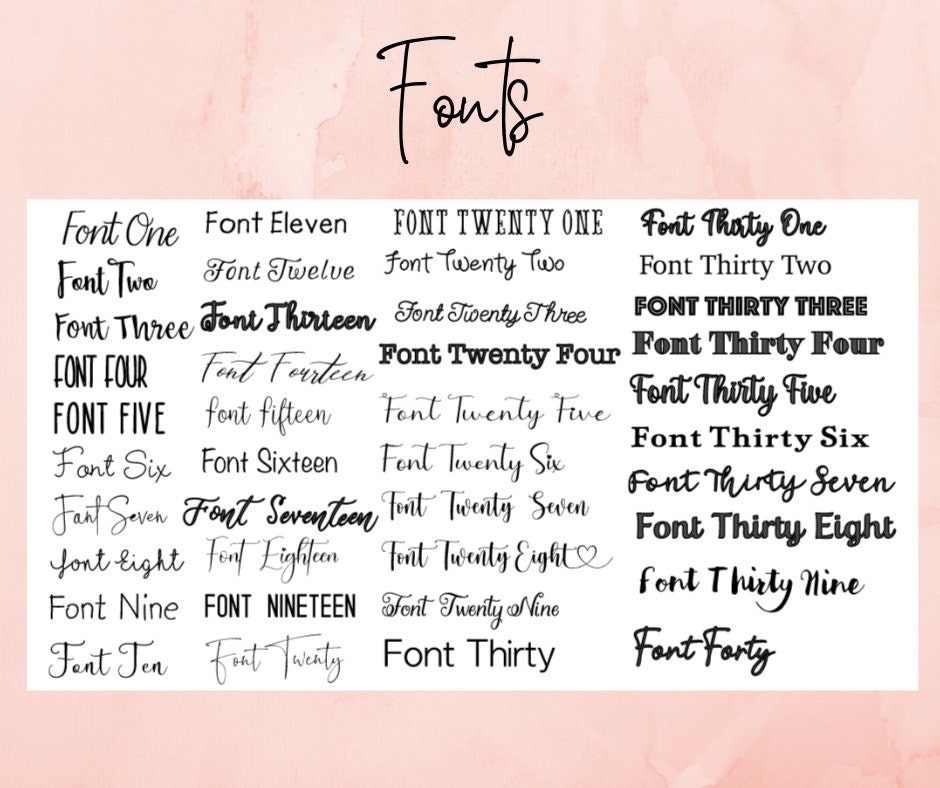 Fonts
Font One
Font Two
Font Three
FONT FOUR
FONT FIVE
Font Six
Font Seven
font Eight
Font Nine
Font Ten
Font Eleven
Font Twelve
Font Thirteen
Font Fourteen
font fifteen
Font Sixteen
Font Seventeen
Font Eighteen
FONT NINETEEN
Font Twenty
FONT TWENTY ONE
Font Twenty Two
Font Twenty Three
Font Twenty Four
Font Twenty Five
Font Twenty Six
Font Twenty Seven
Font Twenty Eight
Font Twenty Nine
Font Thirty
Font Thirty One
Font Thirty Two
FONT THIRTY THREE
Font Thirty Four
Font Thirty Five
Font Thirty Six
Font Thirty Seven
Font Thirty Eight
Font Thirty Nine
Font Forty